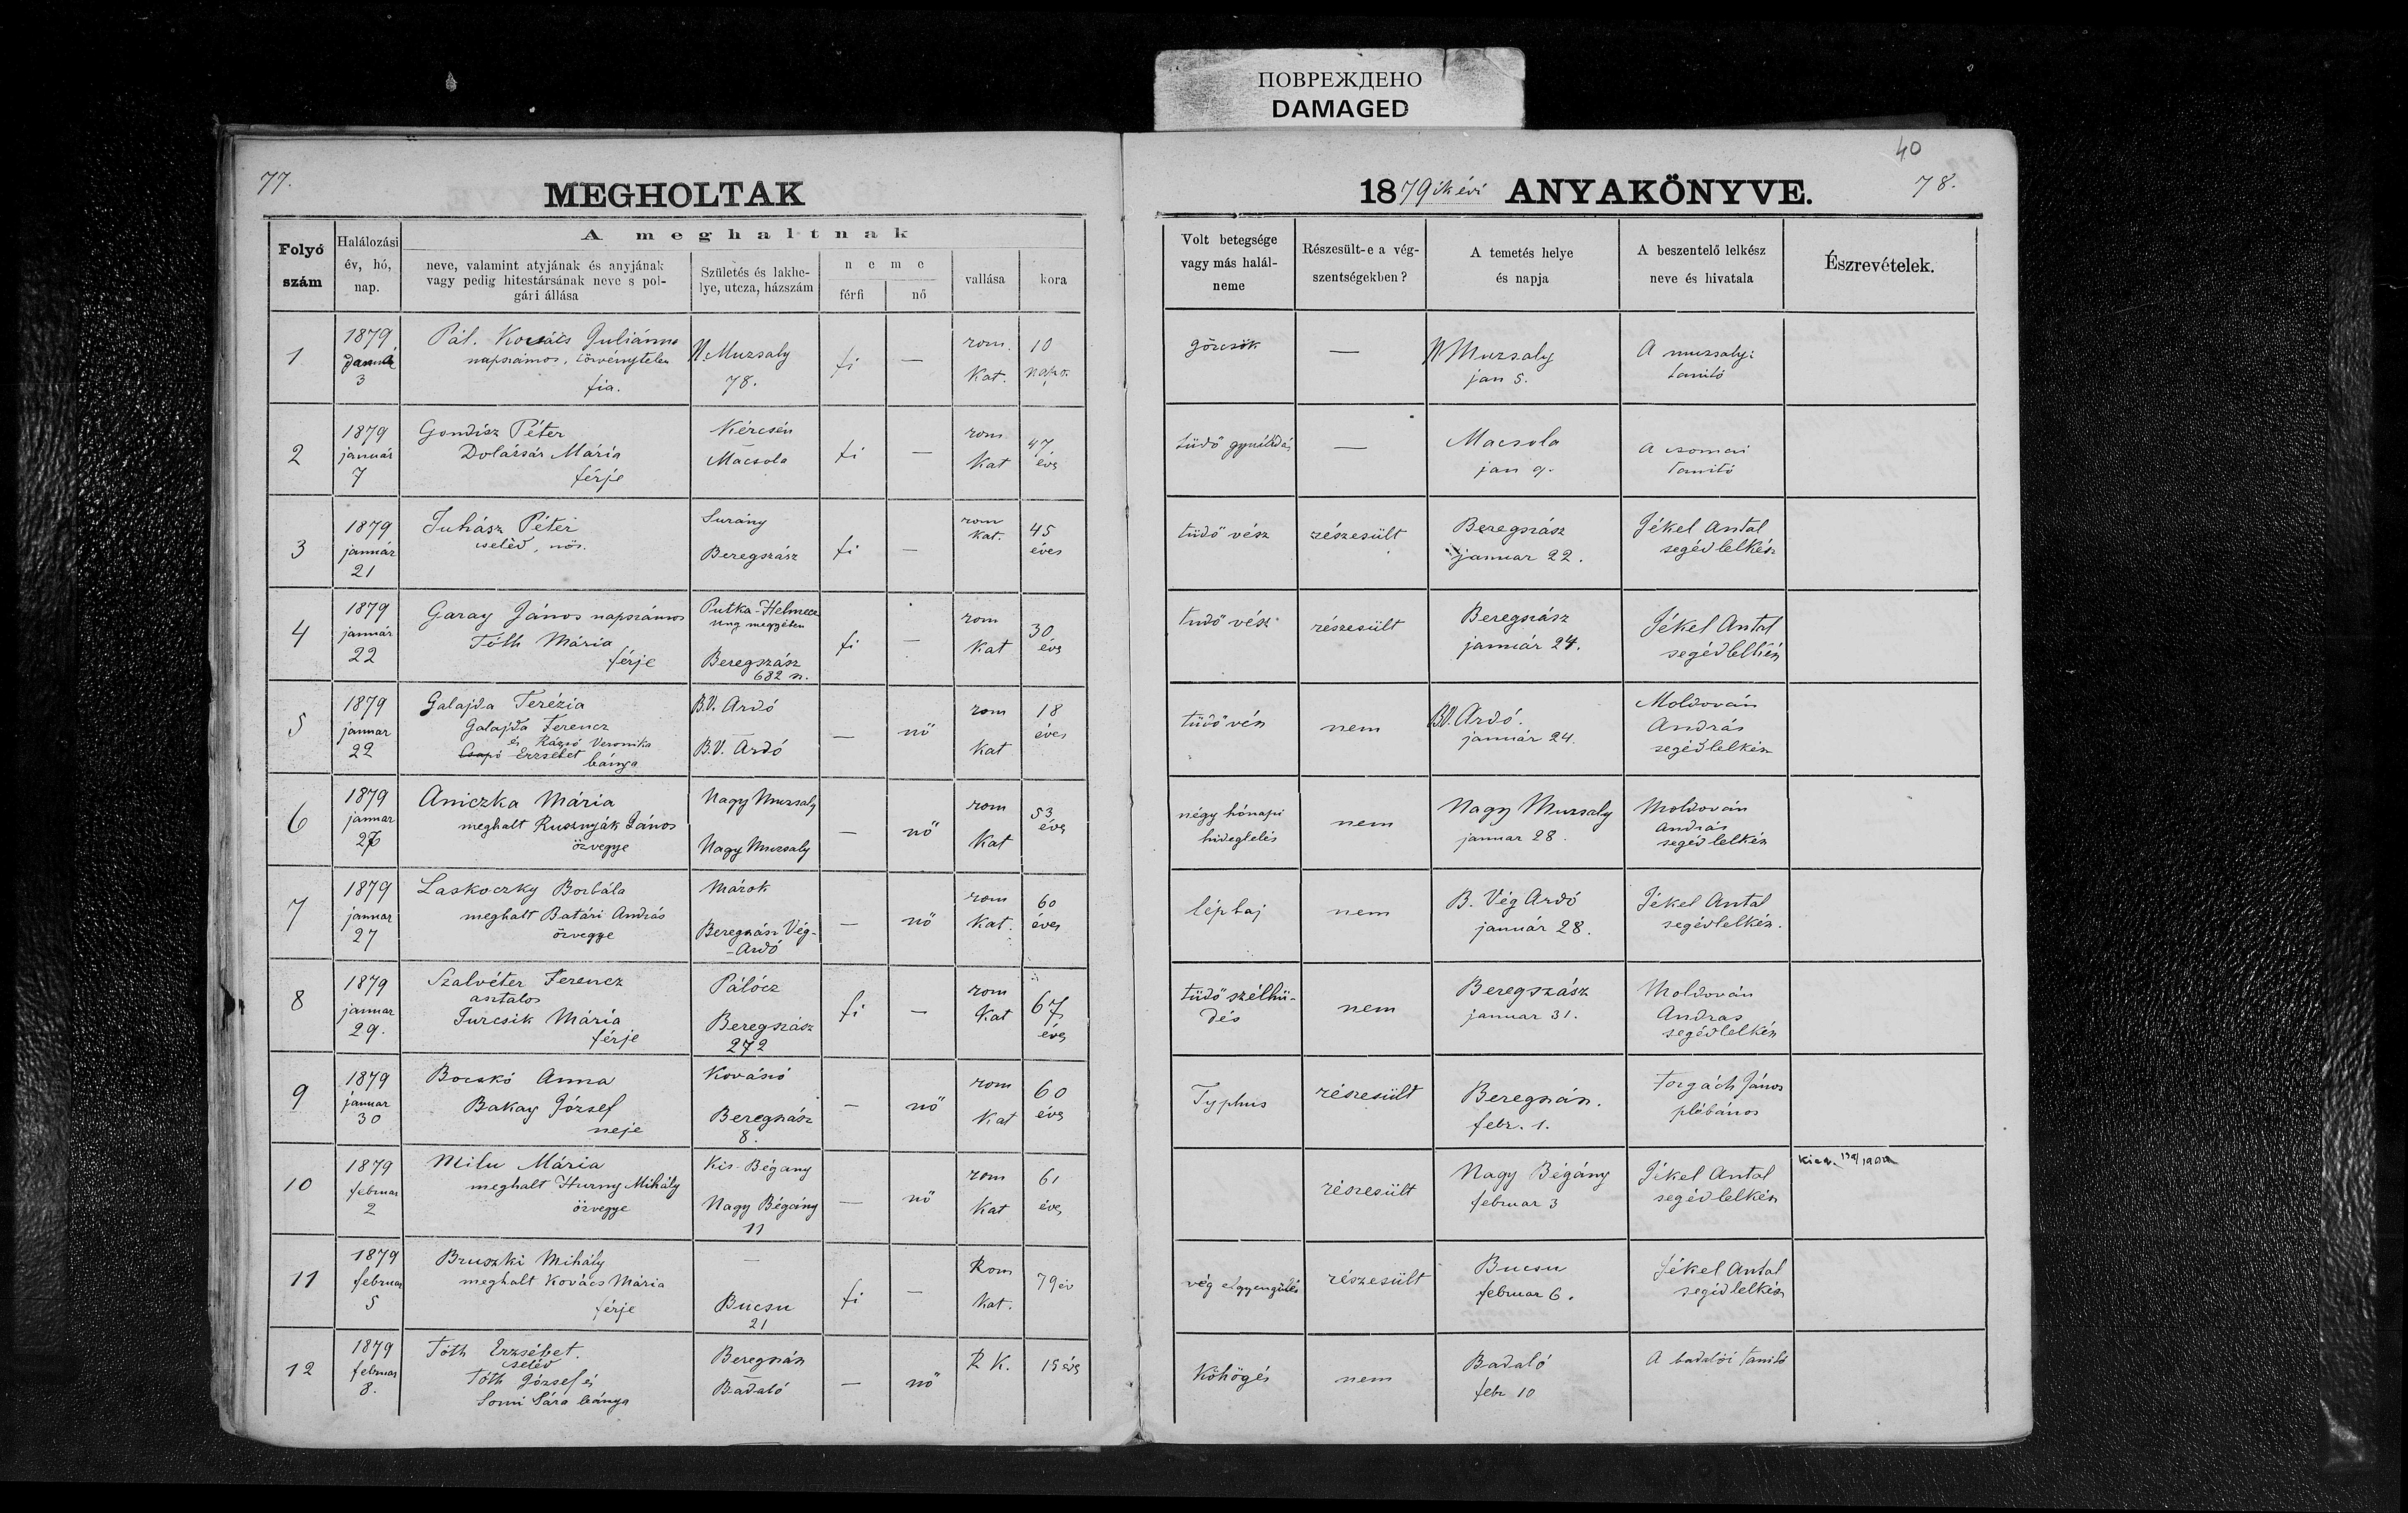 ПОВРЕЖДЕНО
DAMAGED
77.
MEGHOLTAK
40
1879ik évi ANYAKÖNYVE.
78.
Folyó szám
Halálozási év, hó, nap.
A meghaltnak
neve, valamint atyjának és anyjának
vagy pedig hitestársának neve s pol-
gári állása
Születés és lakhe-
lye, utcza, házszám
neme
férfi
nő
vallása
kora
Volt betegsége
vagy más halál-
neme
Részesült-e a vég-
szentségekben?
A temetés helye
és napja
A beszentelő lelkész
neve és hivatala
Észrevételek.
1
1879
3
Pál. Kovács Juliánna
napszámos, törvénytelen
fia.
N. Muzsaly
78.
fi
—
rom.
Kat.
10
napo.
görcsök
—
N Muzsaly
jan 5.
A muzsalyi
tanitó
2
1879
január
7
Gondisz Péter
Mária
férje
Kércsén
Macsola
fi
—
rom
Kat
47
éves
tüdő
—
Macsola
jan 9.
A csomai
tanitó
3
1879
január
21
Juhász Péter
cseléd, nős.
Surány
Beregszász
fi
—
rom
kat.
45
éves
tüdő vész
részesült
Beregszász
januar 22.
Jékel Antal
segédlelkész
4
1879
január
22
Garay János napszámos
Tóth Mária
férje
Putka-Helmecz
Ung megyében
Beregszász
682 sz.
fi
—
rom
Kat
30
éves
tüdő vész
részesült
Beregszász
január 24.
Jékel Antal
segédlelkész
5
1879
januar
22
Galajda Terézia
Galajda Ferencz
és Veronika
Csapó Erzsébet leánya
B.V. Ardó
B.V. Ardó
—
nő
rom
Kat
18
éves
tüdővész
nem
B.V. Ardó.
január 24.
Moldován
András
segédlelkész
6
1879
januar
26
Aniczka Mária
meghalt Rusznyák János
özvegye
Nagy Muzsaly
Nagy Muzsaly
—
nő
rom
Kat
53
éves
négy hónapi
hideglelés
nem
Nagy Muzsaly
januar 28.
Moldován
András
segédlelkész
7
1879
januar
27
Laskoczky Borbála
meghalt Batári András
özvegye
Márok
Beregszász Vég-
-Ardó
—
nő
rom
Kat.
60
éves
lépbaj
nem
B. Vég Ardó
január 28.
Jékel Antal
segédlelkész.
8
1879
januar
29.
Szalvéter Ferencz
asztalos
Jurcsik Mária
férje
Pálócz
Beregszász
272
fi
—
rom
Kat
67
éves
tüdő szélhü-
dés
nem
Beregszász
januar 31.
Moldován
Andras
segédlelkész
9
1879
januar
30
Bocskó Anna
Bakay József
neje
Kovászó
Beregszász
8.
—
nő
rom
Kat
60
éves
Typhus
részesült
Beregszász.
febr. 1.
Forgách János
plébános
10
1879
februar
2
Milu Mária
meghalt Hurny Mihály
özvegye
Kis-Bégany
Nagy Bégány
11
—
nő
rom
Kat
61
éves
részesült
Nagy Bégány
februar 3
Jékel Antal
segédlelkész
11
1879
februar
5
Bruszki Mihály
meghalt Kovács Mária
férje
—
Bucsu
21
fi
—
Rom
Kat.
79 év
vég elgyengülés
részesült
Bucsu
februar 6.
Jékel Antal
segédlelkész
12
1879
februar
8.
Tóth Erzsébet.
cseléd
Tóth József és
Somi Sára leánya
Beregszász
Badaló
—
nő
R K.
15 éves
Köhögés
nem
Badaló
febr 10
A badalói tanitó